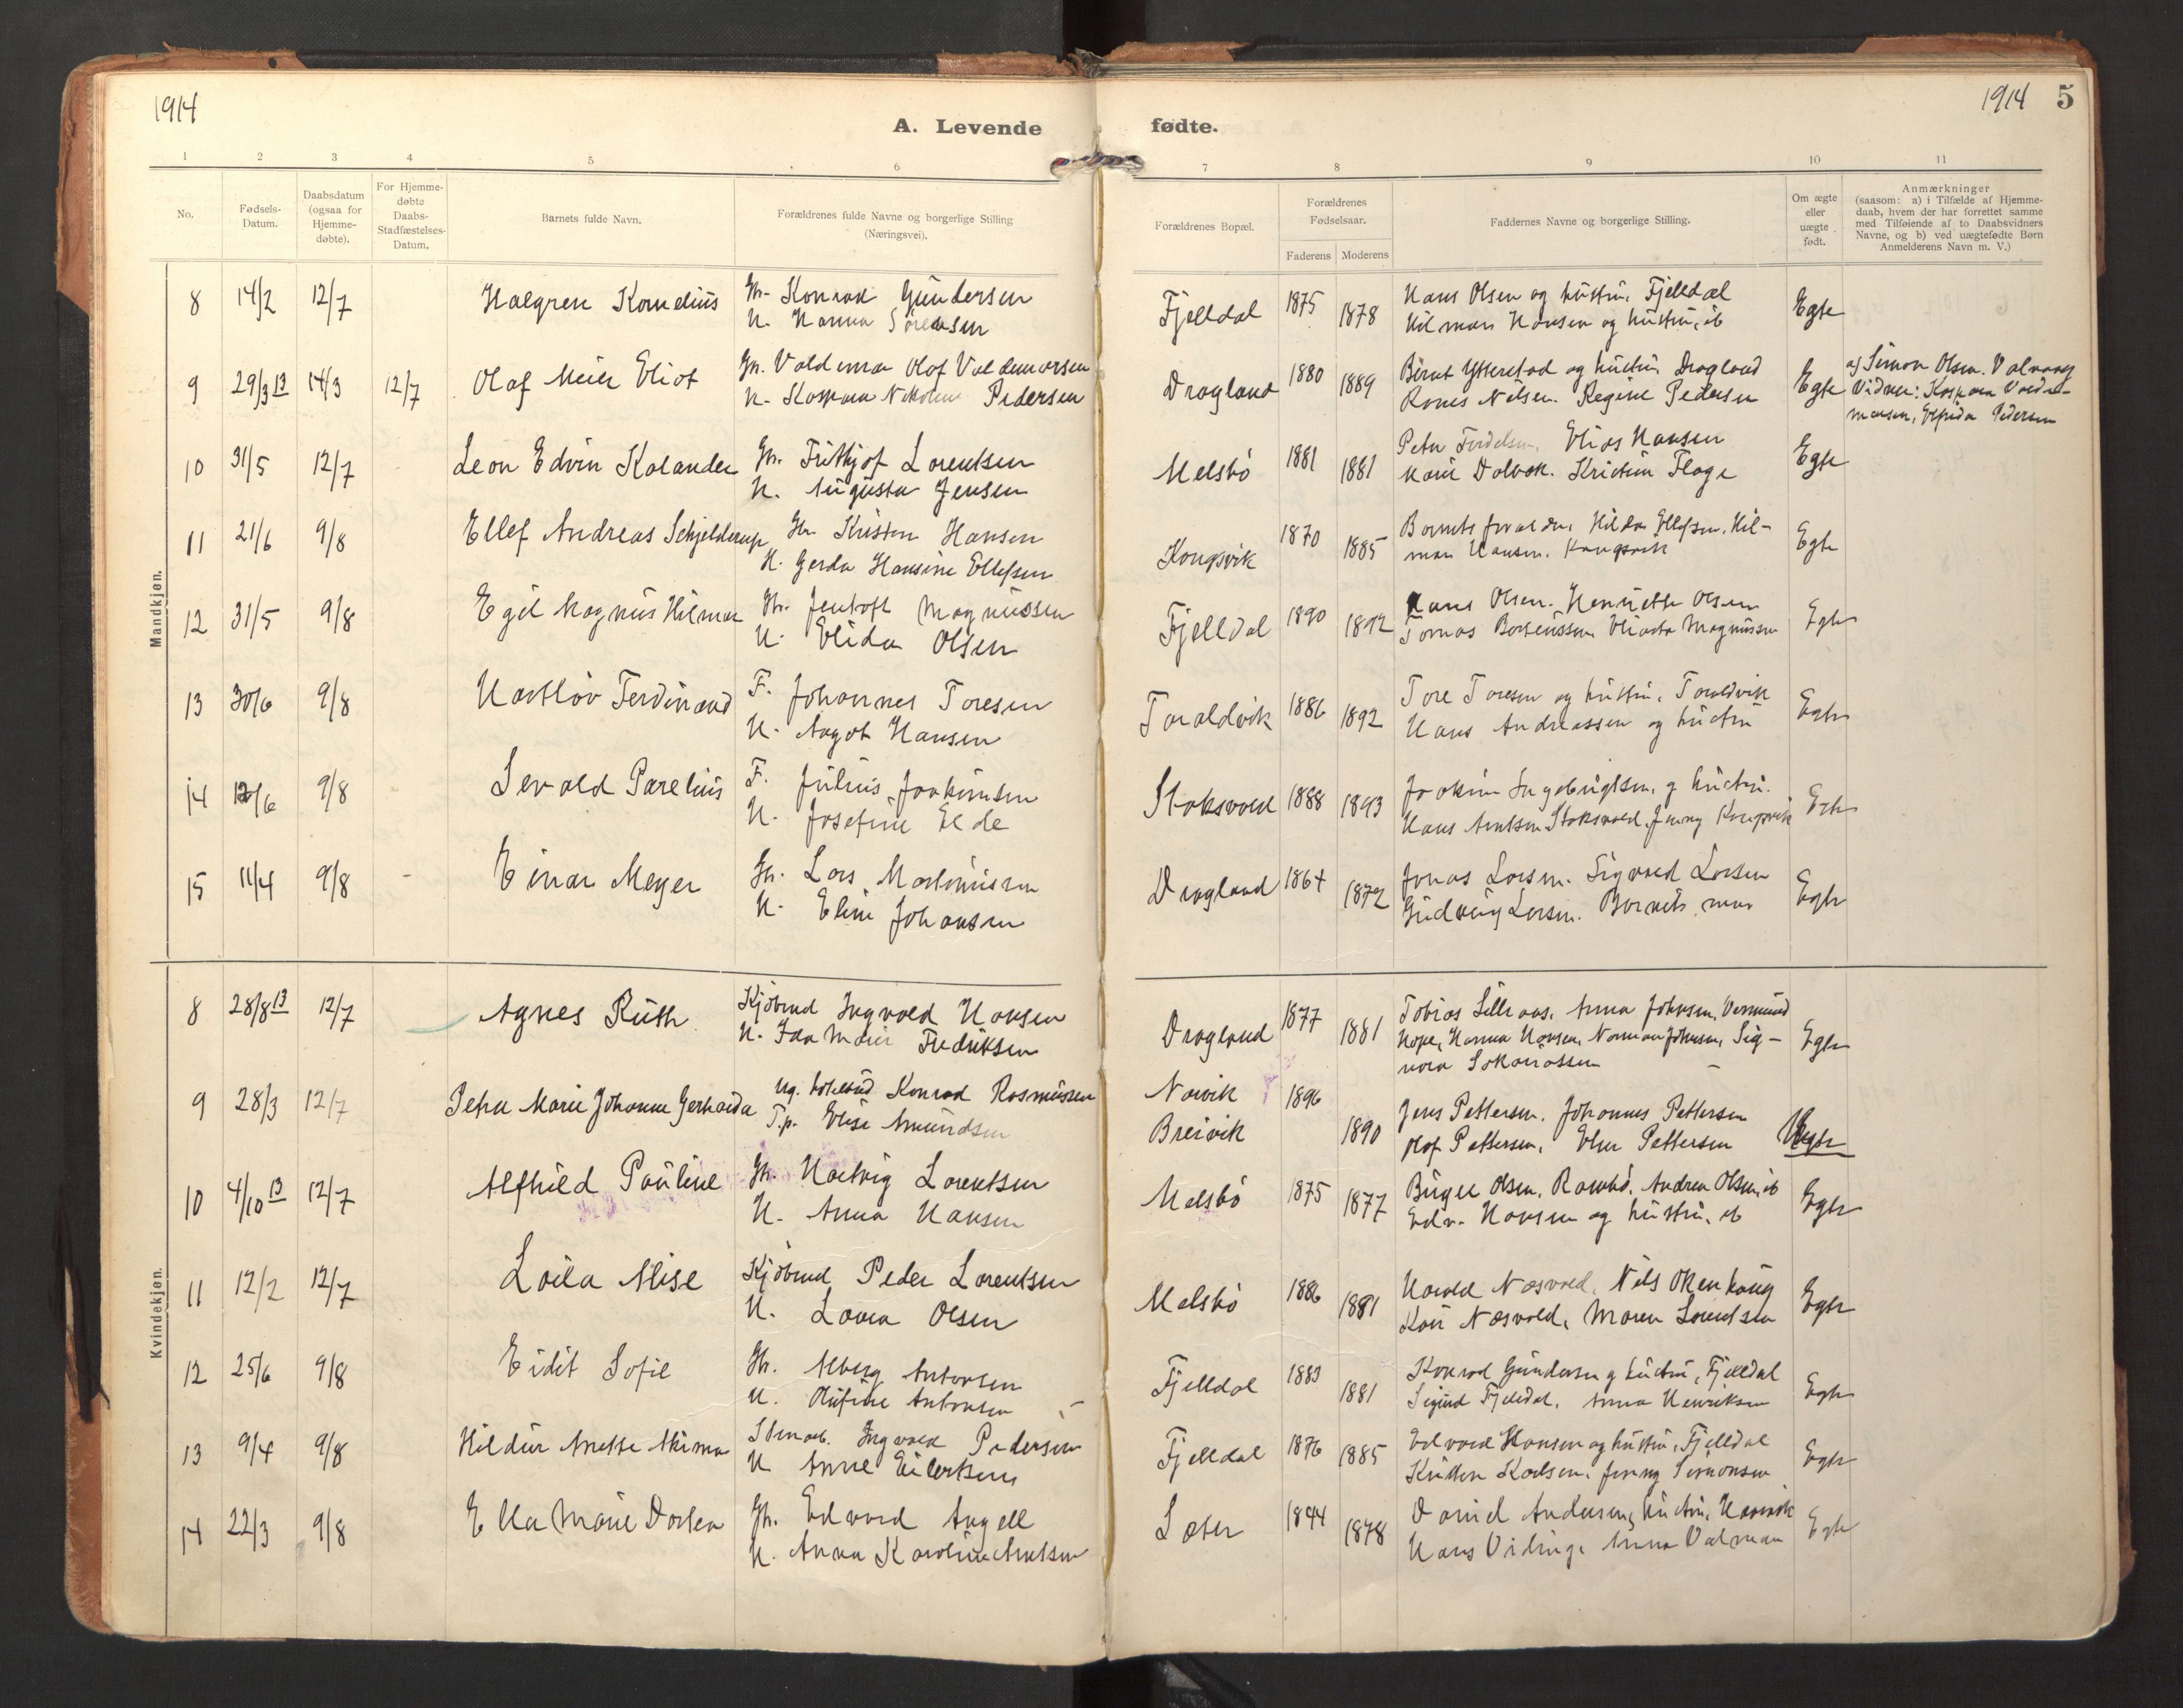 1914
A. Levende
fødte.
1914 5
1 2 3 4 5 6 7 8 9 10 11
No.
Fødsels-
Datum.
Daabsdatum
(ogsaa for
Hjemme-
døbte).
For Hjemme-
døbte
Daabs-
Stadfæstelses-
Datum.
Barnets fulde Navn.
Forældrenes fulde Navne og borgerlige Stilling
(Næringsvei).
Forældrenes Bopæl.
Forældrenes
Fødselsaar.
Faderens Moderens
Faddernes Navne og borgerlige Stilling.
Om ægte
eller
uægte
født.
Anmærkninger
(saasom: a) i Tilfælde af Hjemme-
daab, hvem der har forrettet samme
med Tilføiende af to Daabsvidners
Navne, og b) ved uægtefødte Børn
Anmelderens Navn m. V.)
Mandkjøn.
8 14/2 12/7 Halgren Kornelius Gbr. Konrad Gundersen Fjelldal 1875 Hans Olsen og hustru, Fjelldal Egte
H. Hanna Sørensen 1878 Hilmar Hansen og hustru, ib
9 29/3 13 14/3 12/7 Olaf Meier Eliot Gbr. Valdemar Olaf Valdemarsen Dragland 1880 Bernt Ytterstad og hustru Dragland Egte af Simon Olsen. Valvaag
H. Kaspara Nikoline Pedersen 1889 Nilsen. Regine Pedersen Vidner: Kaspara Valde-
marsen, Pedersen
10 31/5 12/7 Leon Edvin Kolander Gbr. Frithjof Lorentsen Melsbø 1881 Peter Elias Hansen Egte
H. Augusta Jensen 1881 Marie Kristine Flage
11 21/6 9/8 Ellef Andreas Schjelderup Gbr. Kristen Hansen Kongsvik 1870 Barnets forældre, Hilda Ellefsen, Hil- Egte
H. Gerda Hansine Ellefsen 1885 mar Hansen. Kongsvik
12 31/5 9/8 Egil Magnus Hilmar Gbr. Jentoft Magnussen Fjelldal 1890 Hans Olsen. Henriette Olsen Egte
H. Elida Olsen 1892 Tomas Magnussen
13 30/6 9/8 Hartløv Ferdinand F. Johannes Toresen Toraldvik 1886 Tore Toresen og hustru, Toraldvik Egte
H. Aagot Hansen 1892 Hans Andreassen og hustru
14 12/6 9/8 Sevald Parelius F. Julius Joakimsen Stoksvold 1888 Joakim Ingebrigtsen og hustru. Egte
H. Josefine Elde 1893 Hans Arntsen Stoksvold, Jenny Kongsvik
15 11/4 9/8 - Einar Meyer Gbr. Lars Dragland 1864 Jonas Larsen. Sigvard Larsen Egte
H. Eline Johansen 1872 Gudveig Larsen. Barnets mor
Kvindekjøn.
8 28/8 13 12/7 Agnes Ruth Kjøbmd Ingvald Hansen Dragland 1877 Tobias Anna Johnsen, Vermund Egte
H. Ida Marie Fredriksen 1881 Hope, Hanna Hansen, Norman Johnsen, Sig-
nora
9 28/3 12/7 Petra Marie Johanne Gerharda Ug. Konrad Rasmussen Narvik 1896 Jens Pettersen. Johannes Pettersen
T.p. Elise Amundsen Breivik 1890 Olaf Pettersen, Pettersen Uegte
10 4/10 13 12/7 Alfhild Pauline Gbr. Hartvig Lorentsen Melsbø 1875 Birger Olsen, Andrea Olsen, ib Egte
H. Anna Hansen 1877 Edv. Hansen og hustru, ib
11 12/2 12/7 Laila Alise Kjøbmd Peder Lorentsen Melsbø 1886 Harald Næsvold, Nils Egte
H. Lovra Olsen 1881 Kari Næsvold, Maren Lorentsen
12 25/6 9/8 Eidit Sofie Gbr. Alberg Antonsen Fjelldal 1883 Konrad Gundersen og hustru, Fjelldal Egte
H. Olufine Antonsen 1881 Sigurd Fjelldal, Anna Henriksen
13 9/4 9/8 Hildur Anette Stenarb. Ingvald Pedersen Fjelldal 1876 Edvard Hansen og hustru, Fjelldal Egte
H Anne Eilertsen 1885 Kristen Karlsen, Jenny Simonsen
14 22/3 9/8 Ella Marie Dortea Gbr. Edvard Angell Sæter 1844 David Andersen, hustru, Egte
H. Anna Karoline Arntsen 1878 Hans Anna Valman